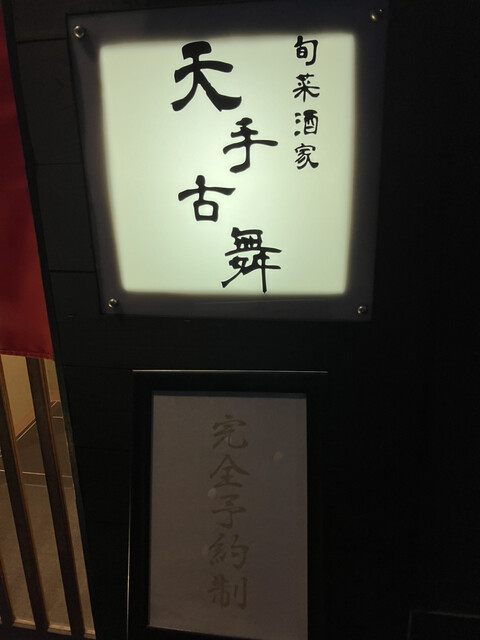 旬菜酒家
天手古舞
完全予約制